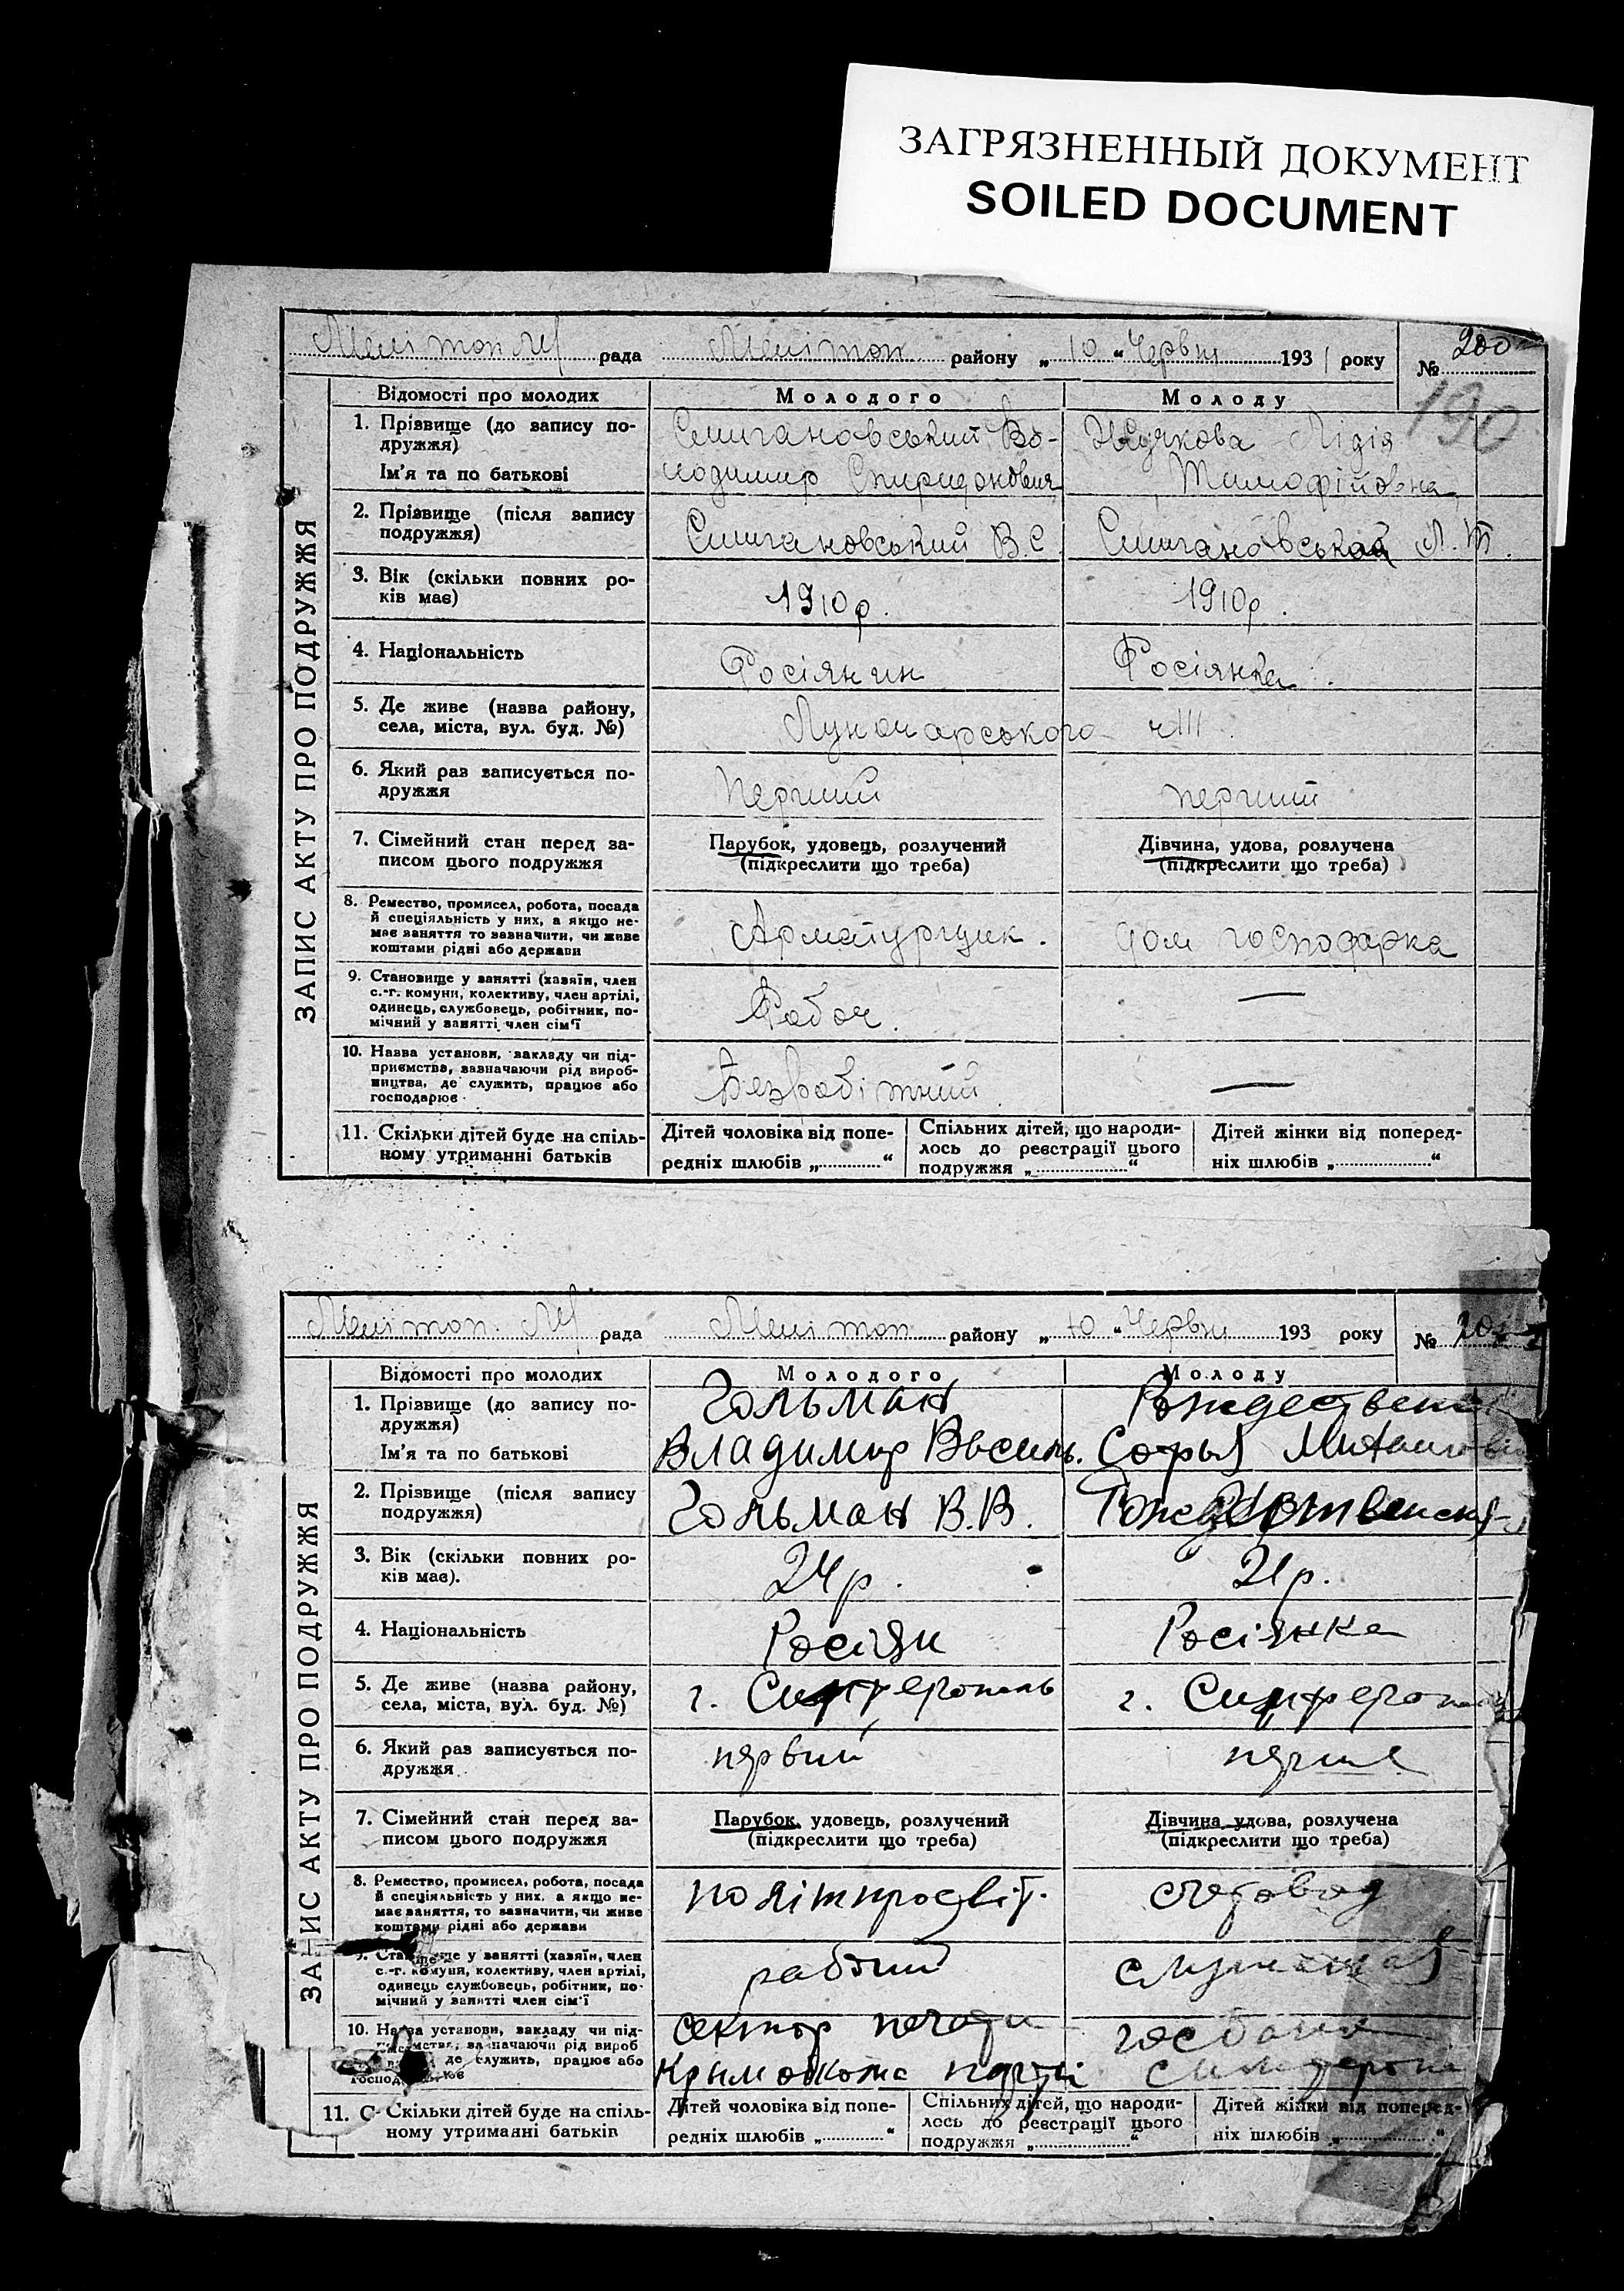 ЗАГРЯЗНЕННЫЙ ДОКУМЕНТ
SOILED DOCUMENT
рада Мелітоп району „ 10 “ Червня 1931 року № 200
190
ЗАПИС АКТУ ПРО ПОДРУЖЖЯ
Відомості про молодих Молодого Молоду
1. Прізвище (до запису по-
дружжя)
Ім'я та по батькові
Володимир Спиридонович
Лідія
Тимофійовна
2. Прізвище (після запису
подружжя)
В. С.
Л. Т.
3. Вік (скільки повних ро-
ків має)
1910р. 1910р.
4. Національність
Росіянин Росіянка
5. Де живе (назва району,
села, міста, вул. буд. №)
Луначарського
6. Який раз записується по-
дружжя
перший перший
7. Сімейний стан перед за-
писом цього подружжя
Парубок, удовець, розлучений
(підкреслити що треба)
Дівчина, удова, розлучена
(підкреслити що треба)
8. Ремество, промисел, робота, посада
й спеціяльність у них, а якщо не-
має заняття то зазначити, чи живе
коштами рідні або держави
Арматурщик. дом господарка
9. Становище у занятті (хазяїн, член
с.-г. комуни, колективу, член артілі,
одинець, службовець, робітник, по-
мічний у занятті член сім'ї
Рабоч. —
10. Назва установи, закладу чи під-
приємства, зазначаючи рід вироб-
ництва, де служить, працює або
господарює
Безробітний. —
11. Скільки дітей буде на спіль-
ному утриманні батьків
Дітей чоловіка від попе-
редніх шлюбів „ “
Спільних дітей, що народи-
лось до реєстрації цього
подружжя „ “
Дітей жінки від поперед-
ніх шлюбів „ “
рада Мелітоп району „ 10 “ Червня 193 року №
ЗАПИС АКТУ ПРО ПОДРУЖЖЯ
Відомості про молодих Молодого Молоду
1. Прізвище (до запису по-
дружжя)
Ім'я та по батькові
Гольман
Владимир Василь.
Софья
2. Прізвище (після запису
подружжя)
Гольман В. В.
3. Вік (скільки повних ро-
ків має).
24р. 21р.
4. Національність
Росіян Росіянка
5. Де живе (назва району,
села, міста, вул. буд. №)
г. Симферополь г. Симферополь
6. Який раз записується по-
дружжя
7. Сімейний стан перед за-
писом цього подружжя
Парубок, удовець, розлучений
(підкреслити що треба)
Дівчина, удова, розлучена
(підкреслити що треба)
8. Ремество, промисел, робота, посада
й спеціяльність у них, а якщо не-
має заняття, то зазначити, чи живе
коштами рідні або держави
політпросвіт. счетовод
у занятті (хазяїн, член
с.-г. комуни, колективу, член артілі,
одинець службовець, робітник, по-
мічний у занятті член сім'ї
рабочий
10. Назва установи, закладу чи під-
зазначаючи рід вироб
де служить, працює або
сектор
партії
11. Скільки дітей буде на спіль-
ному утриманні батьків
Дітей чоловіка від попе-
редніх шлюбів „ “
Спільних дітей, що народи-
лось до реєстрації цього
подружжя „ “
Дітей жінки від поперед-
ніх шлюбів „ “